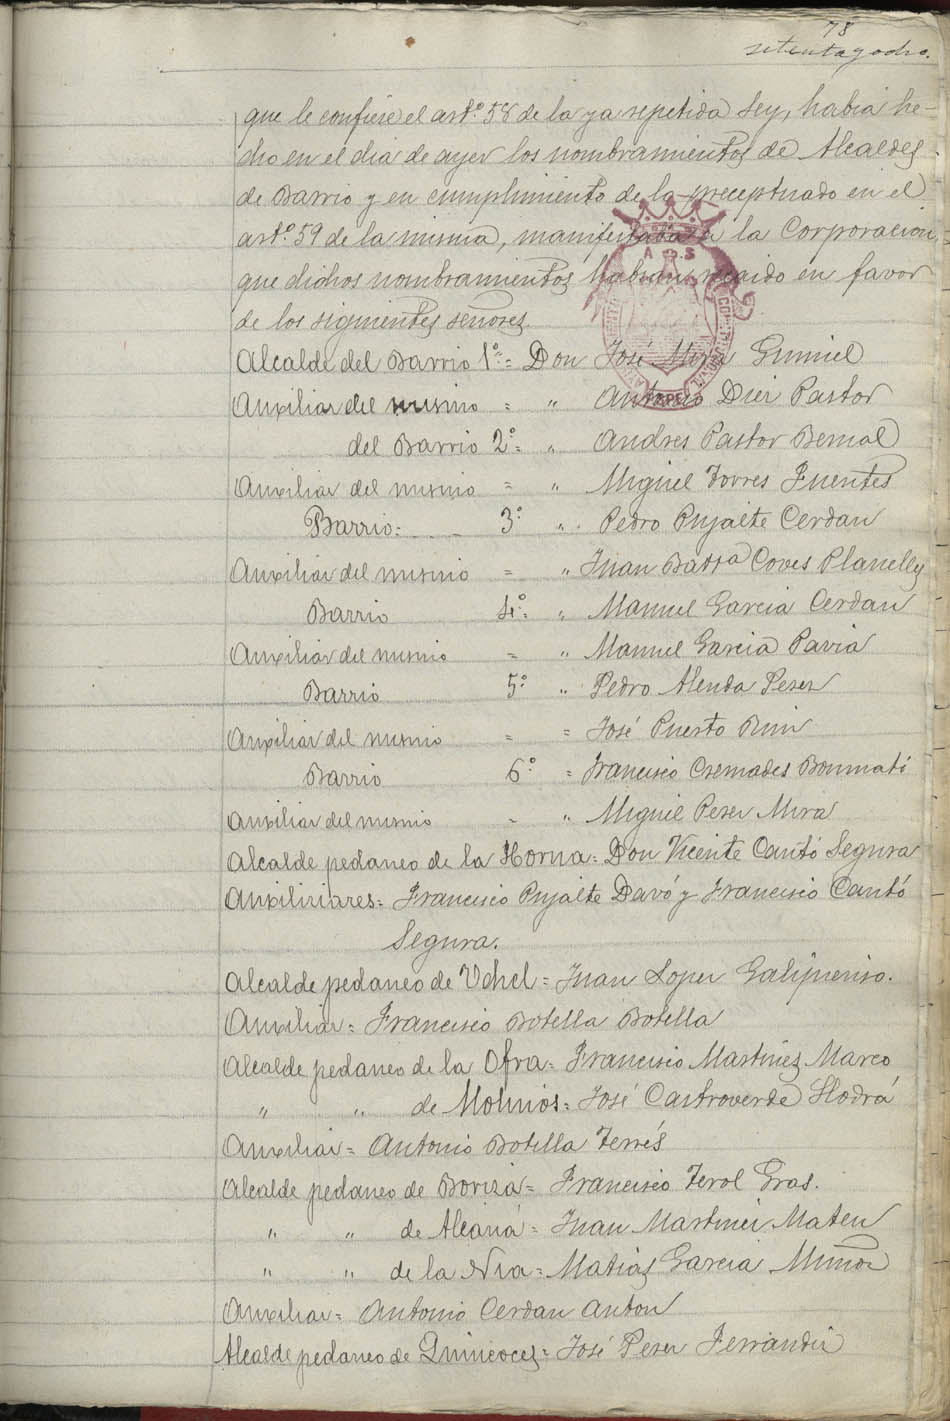 78
setentayocho.
que le confiere el artº. 58 de la ya repetida Ley, habia he-
cho en el dia de ayer los nombramientos de Alcaldes
de Barrio y en cumplimiento de lo preceptuado en el
artº. 59 de la misma, manifestaba a la Corporación,
que dichos nombramientos habian recaido en favor
de los siguientes señores
Alcalde del Barrio 1º = Don José Mira Gumiel
Auxiliar del mismo = " Antonio Diez Pastor
del Barrio 2º = " Andres Pastor Bernal
Auxiliar del mismo = " Miguel Torres Fuentes
Barrio: 3º " Pedro Pujalte Cerdan
Auxiliar del mismo = " Juan Battª Coves Planelles
Barrio 4º = " Manuel Garcia Cerdan
Auxiliar del mismo = " Manuel Garcia Pavia
Barrio 5º " Pedro Alenda Perez
Auxiliar del mismo = = José Puerto
Barrio 6º = Francisco Cremades Bonmatí
Auxiliar del mismo = " Miguel Perez Mira
Alcalde pedaneo de la Horna = Don Vicente Cantó Segura
Auxiliares = Francisco Pujalte Davó y Francisco Cantó
Segura.
Alcalde pedaneo de Uchel = Juan Lopez Galipienso.
Auxiliar = Francisco Botella Botella
Alcalde pedaneo de la Ofra = Francisco Martinez Marco
" " de Molinos = José Castroverde Llodrá
Auxiliar = Antonio Botella Terrés
Alcalde pedaneo de Boriza = Francisco Terol Gras.
" " de Alcaná = Juan Martinez Mateu
" " de la Nia = Matias Garcia Muñoz
Auxiliar = Antonio Cerdan Anton
Alcalde pedaneo de Quincoces = José Perez Ferrandiz